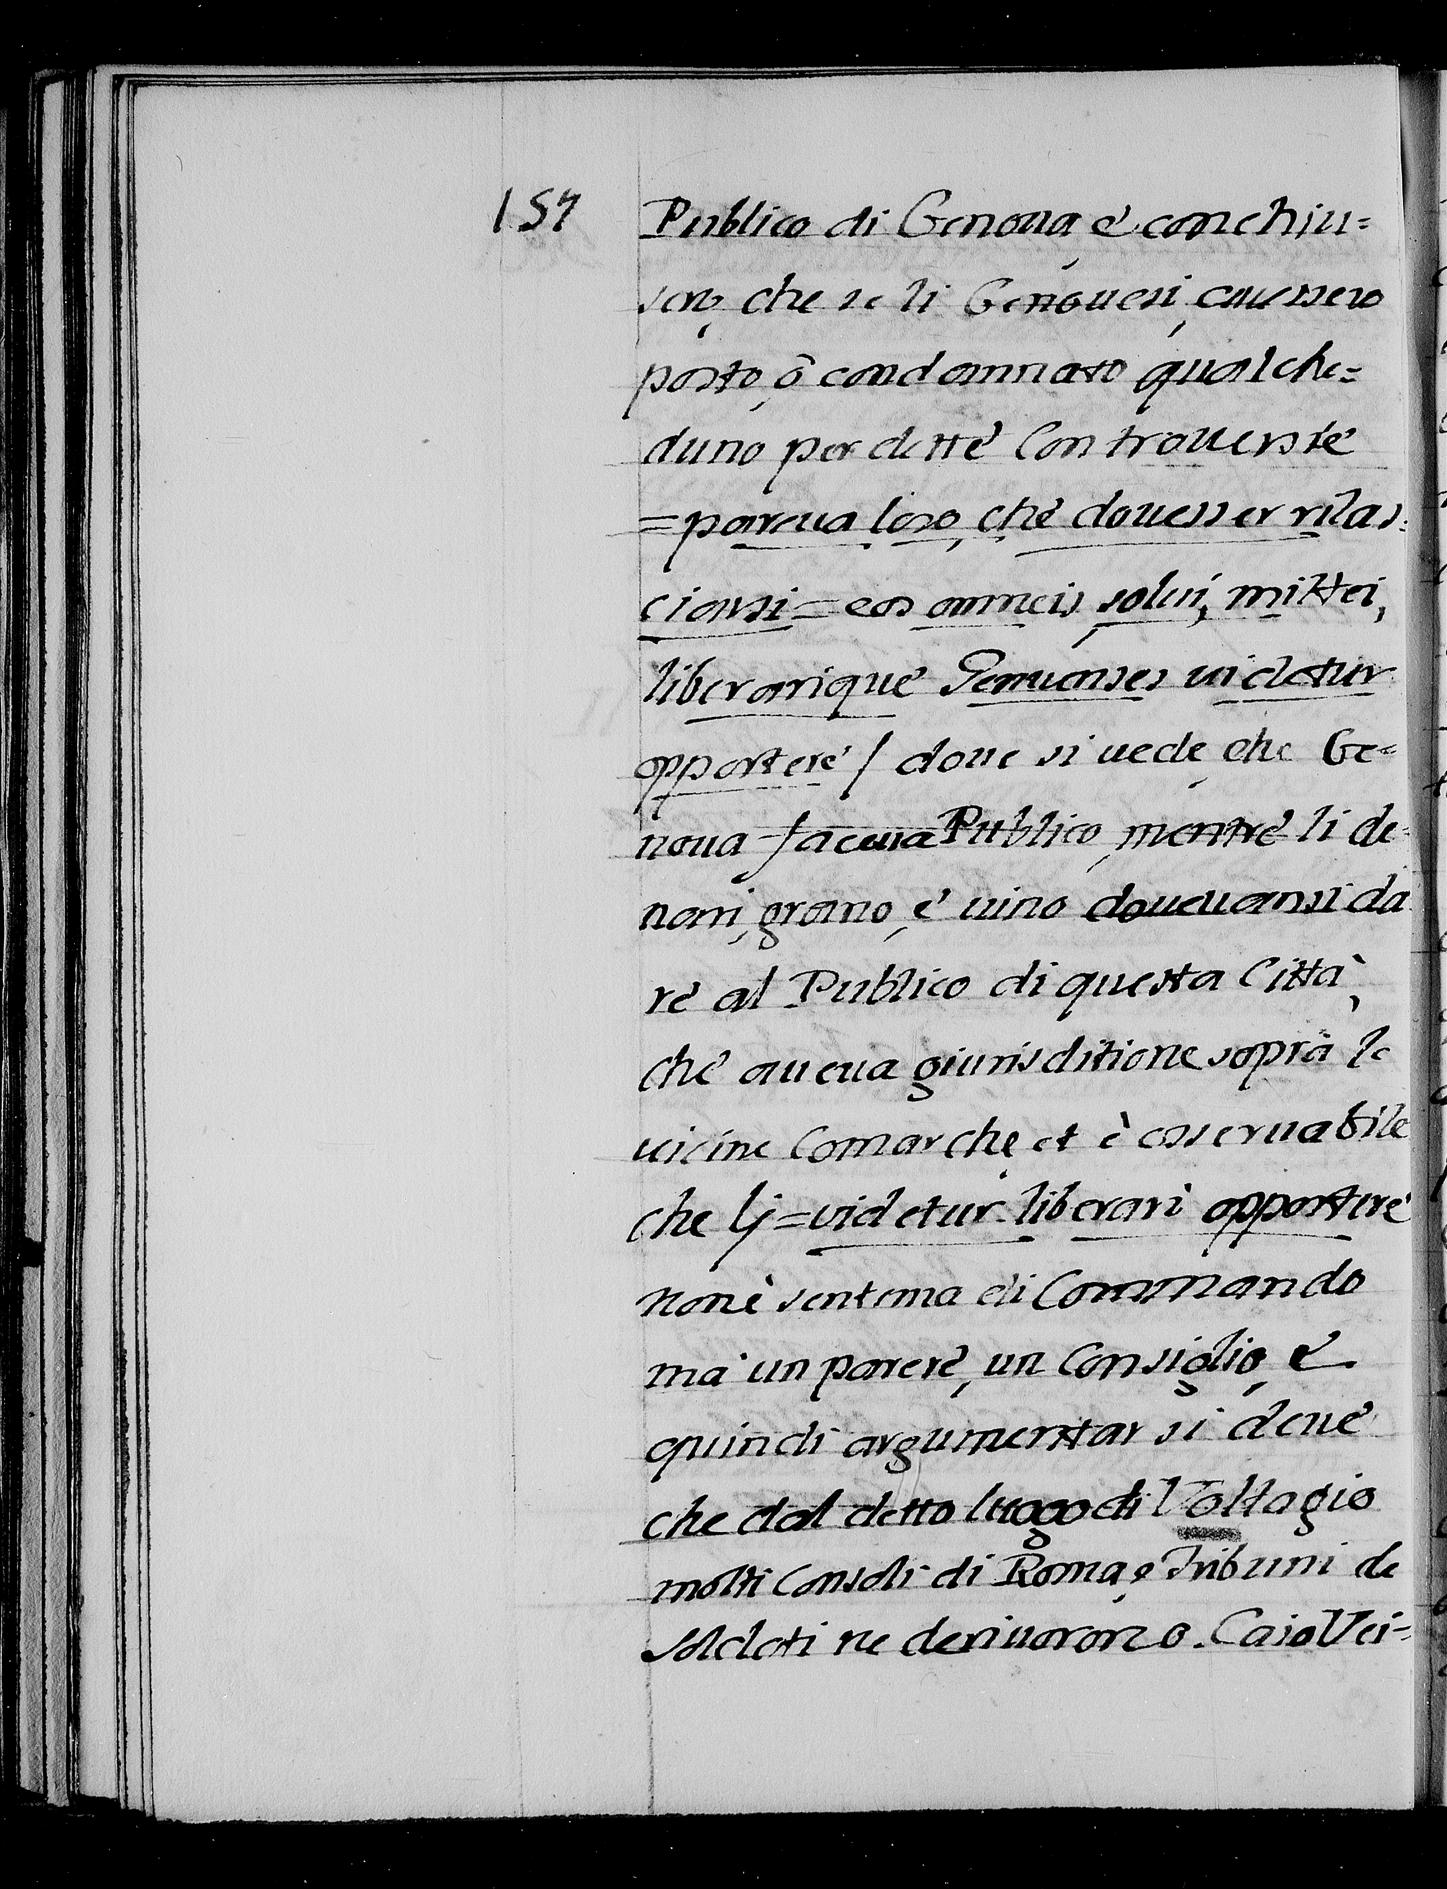 157
Publico di Genoua, e' conchiu=
sero, che se li Genouesi, auessero
posto, ò condannato qualche=
duno per dette' Controuersie
=pareua loro, che' douesser rilas=
ciarsi=eos omneis, solui, mittei,
liberarique' Genuenses uidetur
opportere'/ doue si uede, che Ge=
noua faceua Publico, mentre' li de=
nari, grano, e' uino doueuansi da
re al Publico di questa Città,
che' aueua giurisditione soprà le
uicine Comarche, et è osseruabile
che lj=videtur liberari opportere'
non è sentenza di Commando
mà un parere', un Consiglio, e'
quindi argumentar si deue'
che dal detto luogo di Voltagio
molti Consoli di Roma, e Tribuni de
soldati ne deriuorono. Caio Vei=